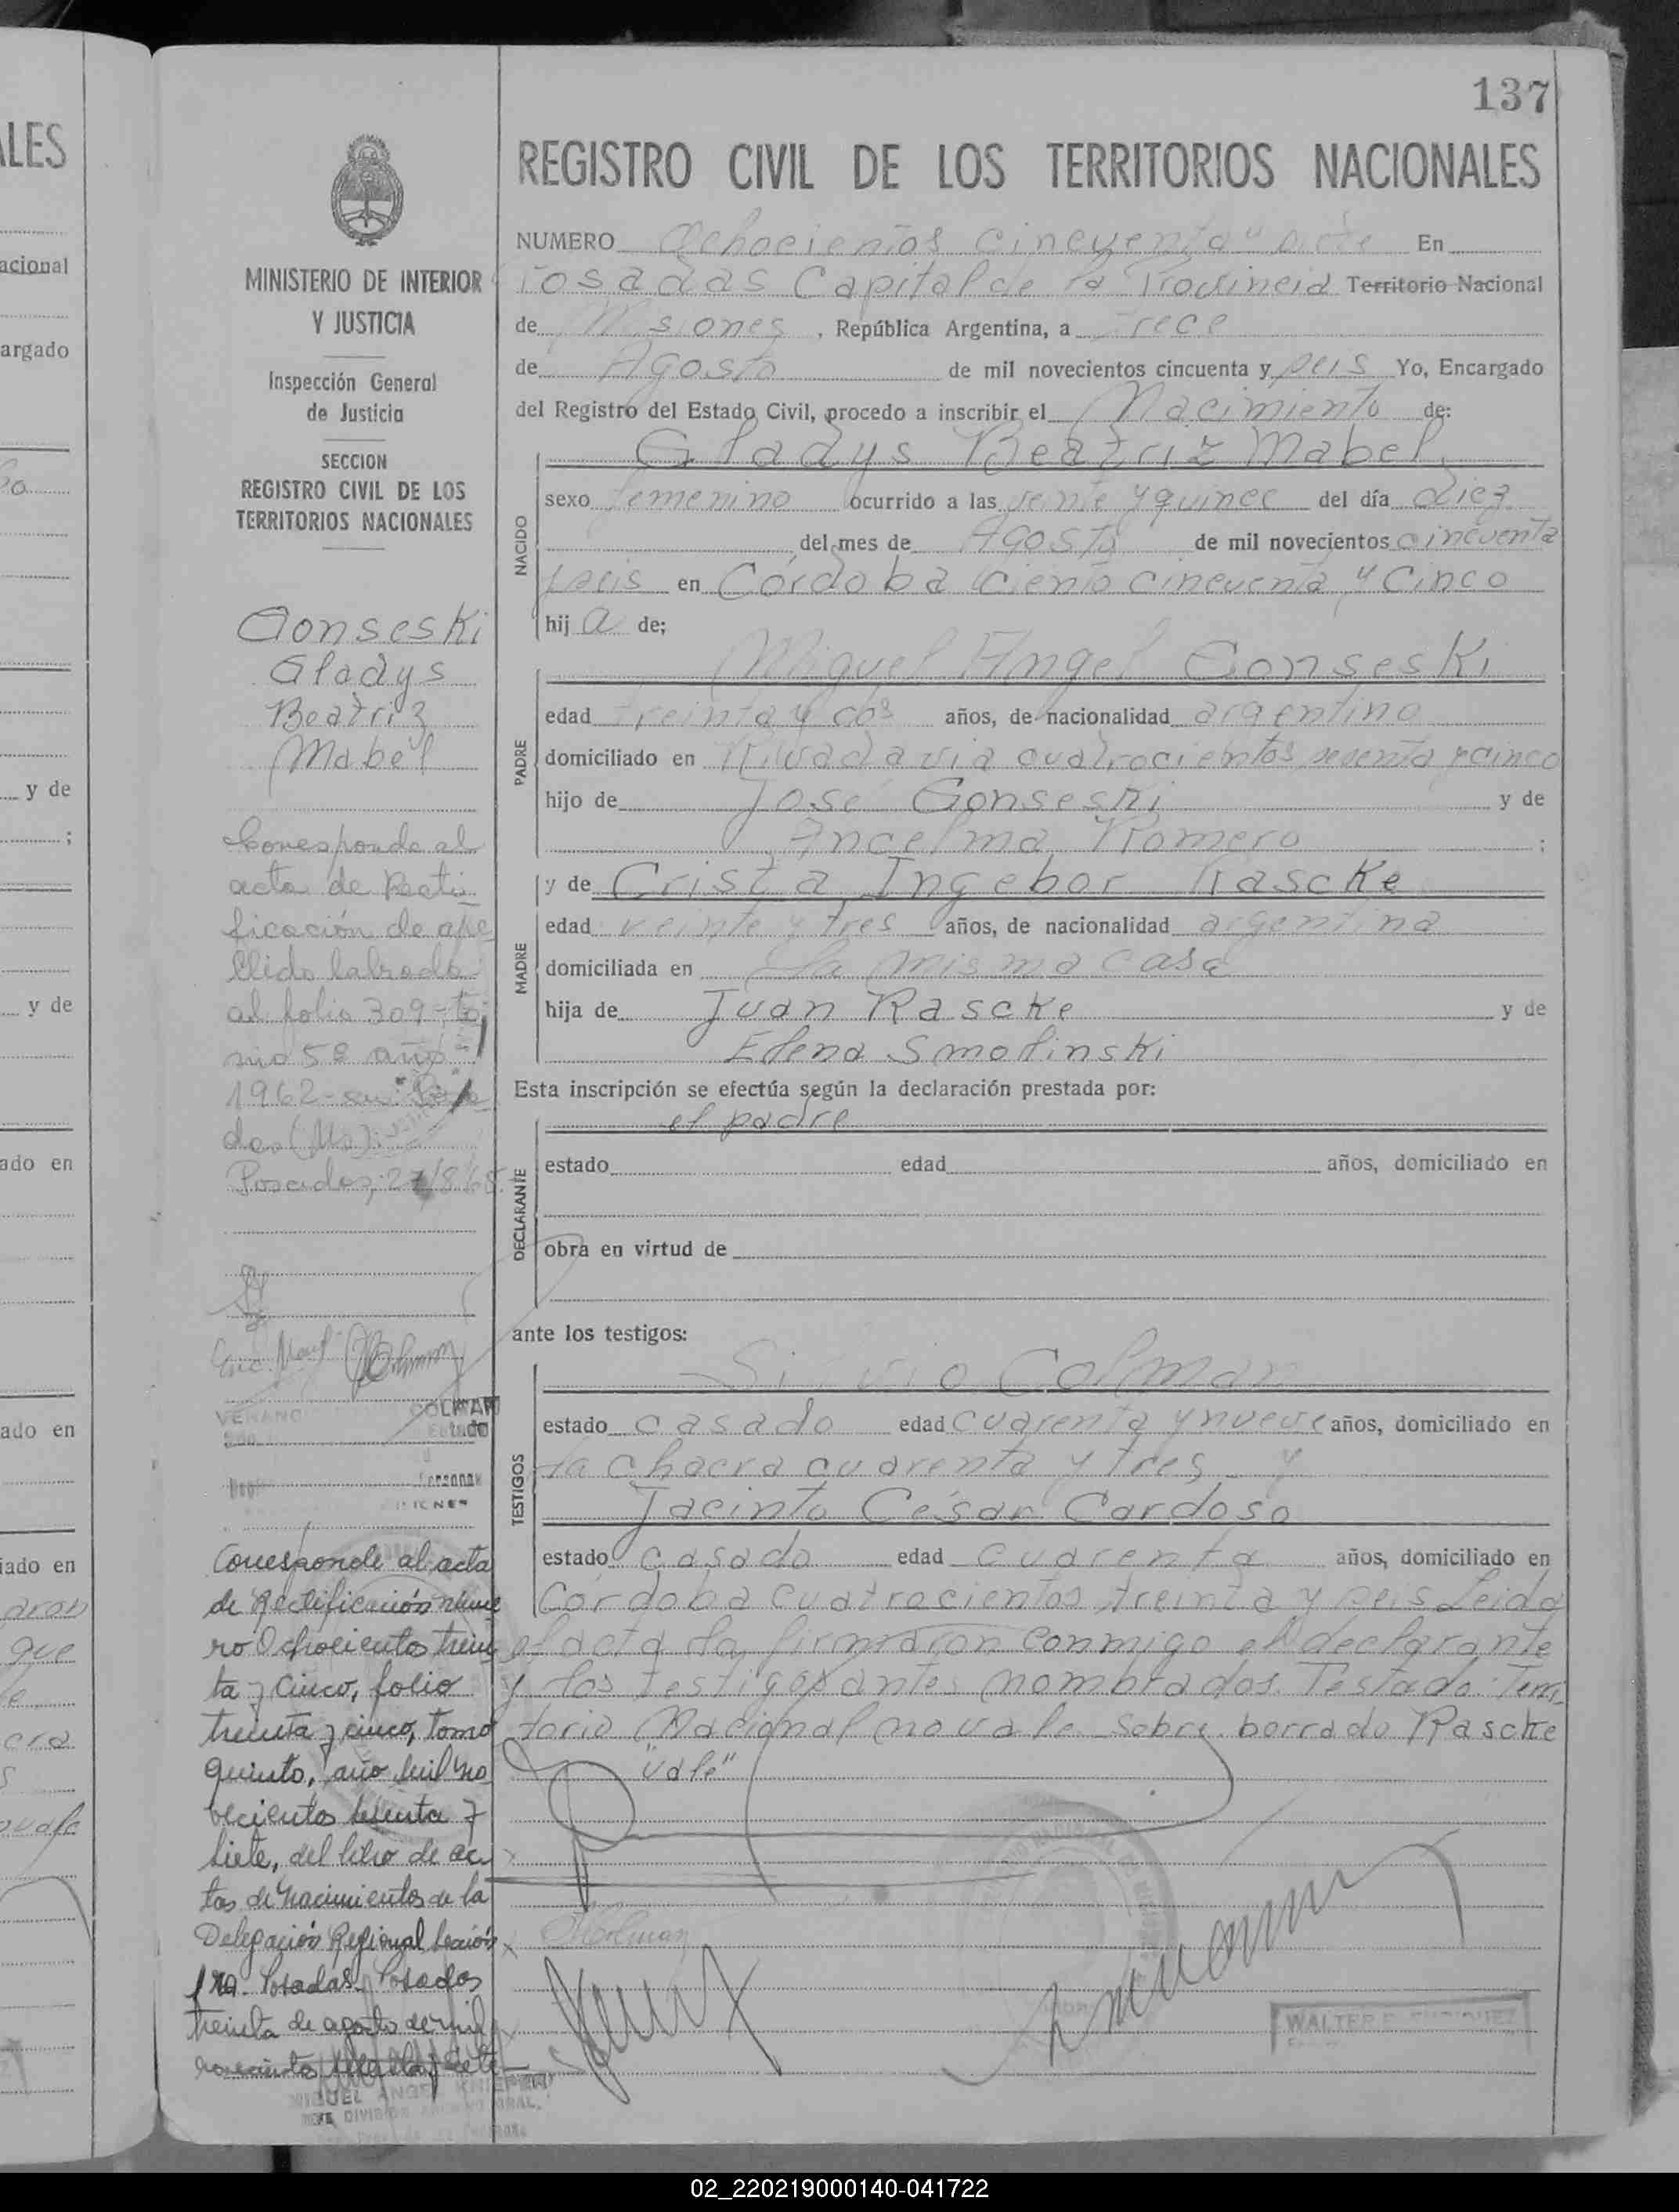 137
REGISTRO CIVIL DE LOS TERRITORIOS NACIONALES
MINISTERIO DE INTERIOR
Y JUSTICIA
Inspección General
de Justicia
SECCION
REGISTRO CIVIL DE LOS
TERRITORIOS NACIONALES
Gonseski
Gladys
Beatriz
Mabel
Corresponde al
acta de Recti-
ficación de ape
llido labrada
al folio 309 - to
mo 5º año
1962 - en
Posadas, 27/8/68
COLMAN
Corresponde al acta
de Rectificación núme
ro Ochocientos trein
ta y cinco, folio
treinta y cinco, tomo
quinto, año mil no
vecientos
siete, del libro de ac
tas de Nacimientos de la
Delegación Regional Sección
1ra. Posadas. Posadas
treinta de agosto de mil
novecientos
MIGUEL ANGEL
JEFE DIVISION
NUMERO Ochocientos cincuenta y siete En
Posadas Capital de la Provincia Territorio Nacional
de Misiones, República Argentina, a trece
de Agosto de mil novecientos cincuenta y seis Yo, Encargado
del Registro del Estado Civil, procedo a inscribir el Nacimiento de:
Gladys Beatriz Mabel
NACIDO
sexo femenino ocurrido a las veinte y quince del día diez
del mes de Agosto de mil novecientos cincuenta
y seis en Córdoba ciento cincuenta y cinco
hij a de;
Miguel Angel Gonseski
PADRE
edad treinta y dos años, de nacionalidad argentino
domiciliado en Rivadavia cuatrocientos setenta y cinco
hijo de José Gonseski y de
Ancelma Romero ;
MADRE
y de Crista Ingebor Rascke
edad veinte y tres años, de nacionalidad argentina
domiciliada en la misma casa
hija de Juan Rascke y de
Elena Smolinski
Esta inscripción se efectúa según la declaración prestada por:
el padre
DECLARANTE
estado edad años, domiciliado en
obra en virtud de
ante los testigos:
Silvio Colman
TESTIGOS
estado casado edad cuarenta y nueve años, domiciliado en
la chacra cuarenta y tres y
Jacinto César Cardoso
estado casado edad cuarenta años, domiciliado en
Córdoba cuatrocientos treinta y seis Leida
el acta la firmaron conmigo el declarante
y los testigos antes nombrados. Testado: Terri
torio Nacional no vale. Sobre borrado Rascke
"vale"
WALTER
02_220219000140-041722